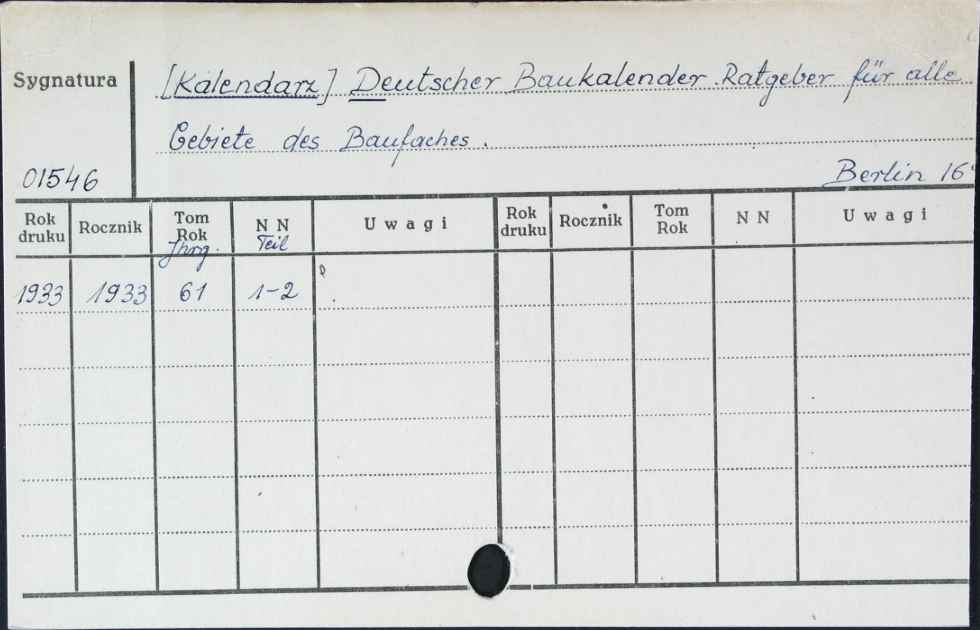 Sygnatura
[Kalendarz] Deutscher Baukalender. Ratgeber für alle
Gebiete des Baufaches.
01546
Berlin 16°
Rok druku Rocznik Tom Rok Jhrg. N N Teil Uwagi Rok druku Rocznik Tom Rok N N Uwagi
1933 1933 61 1-2